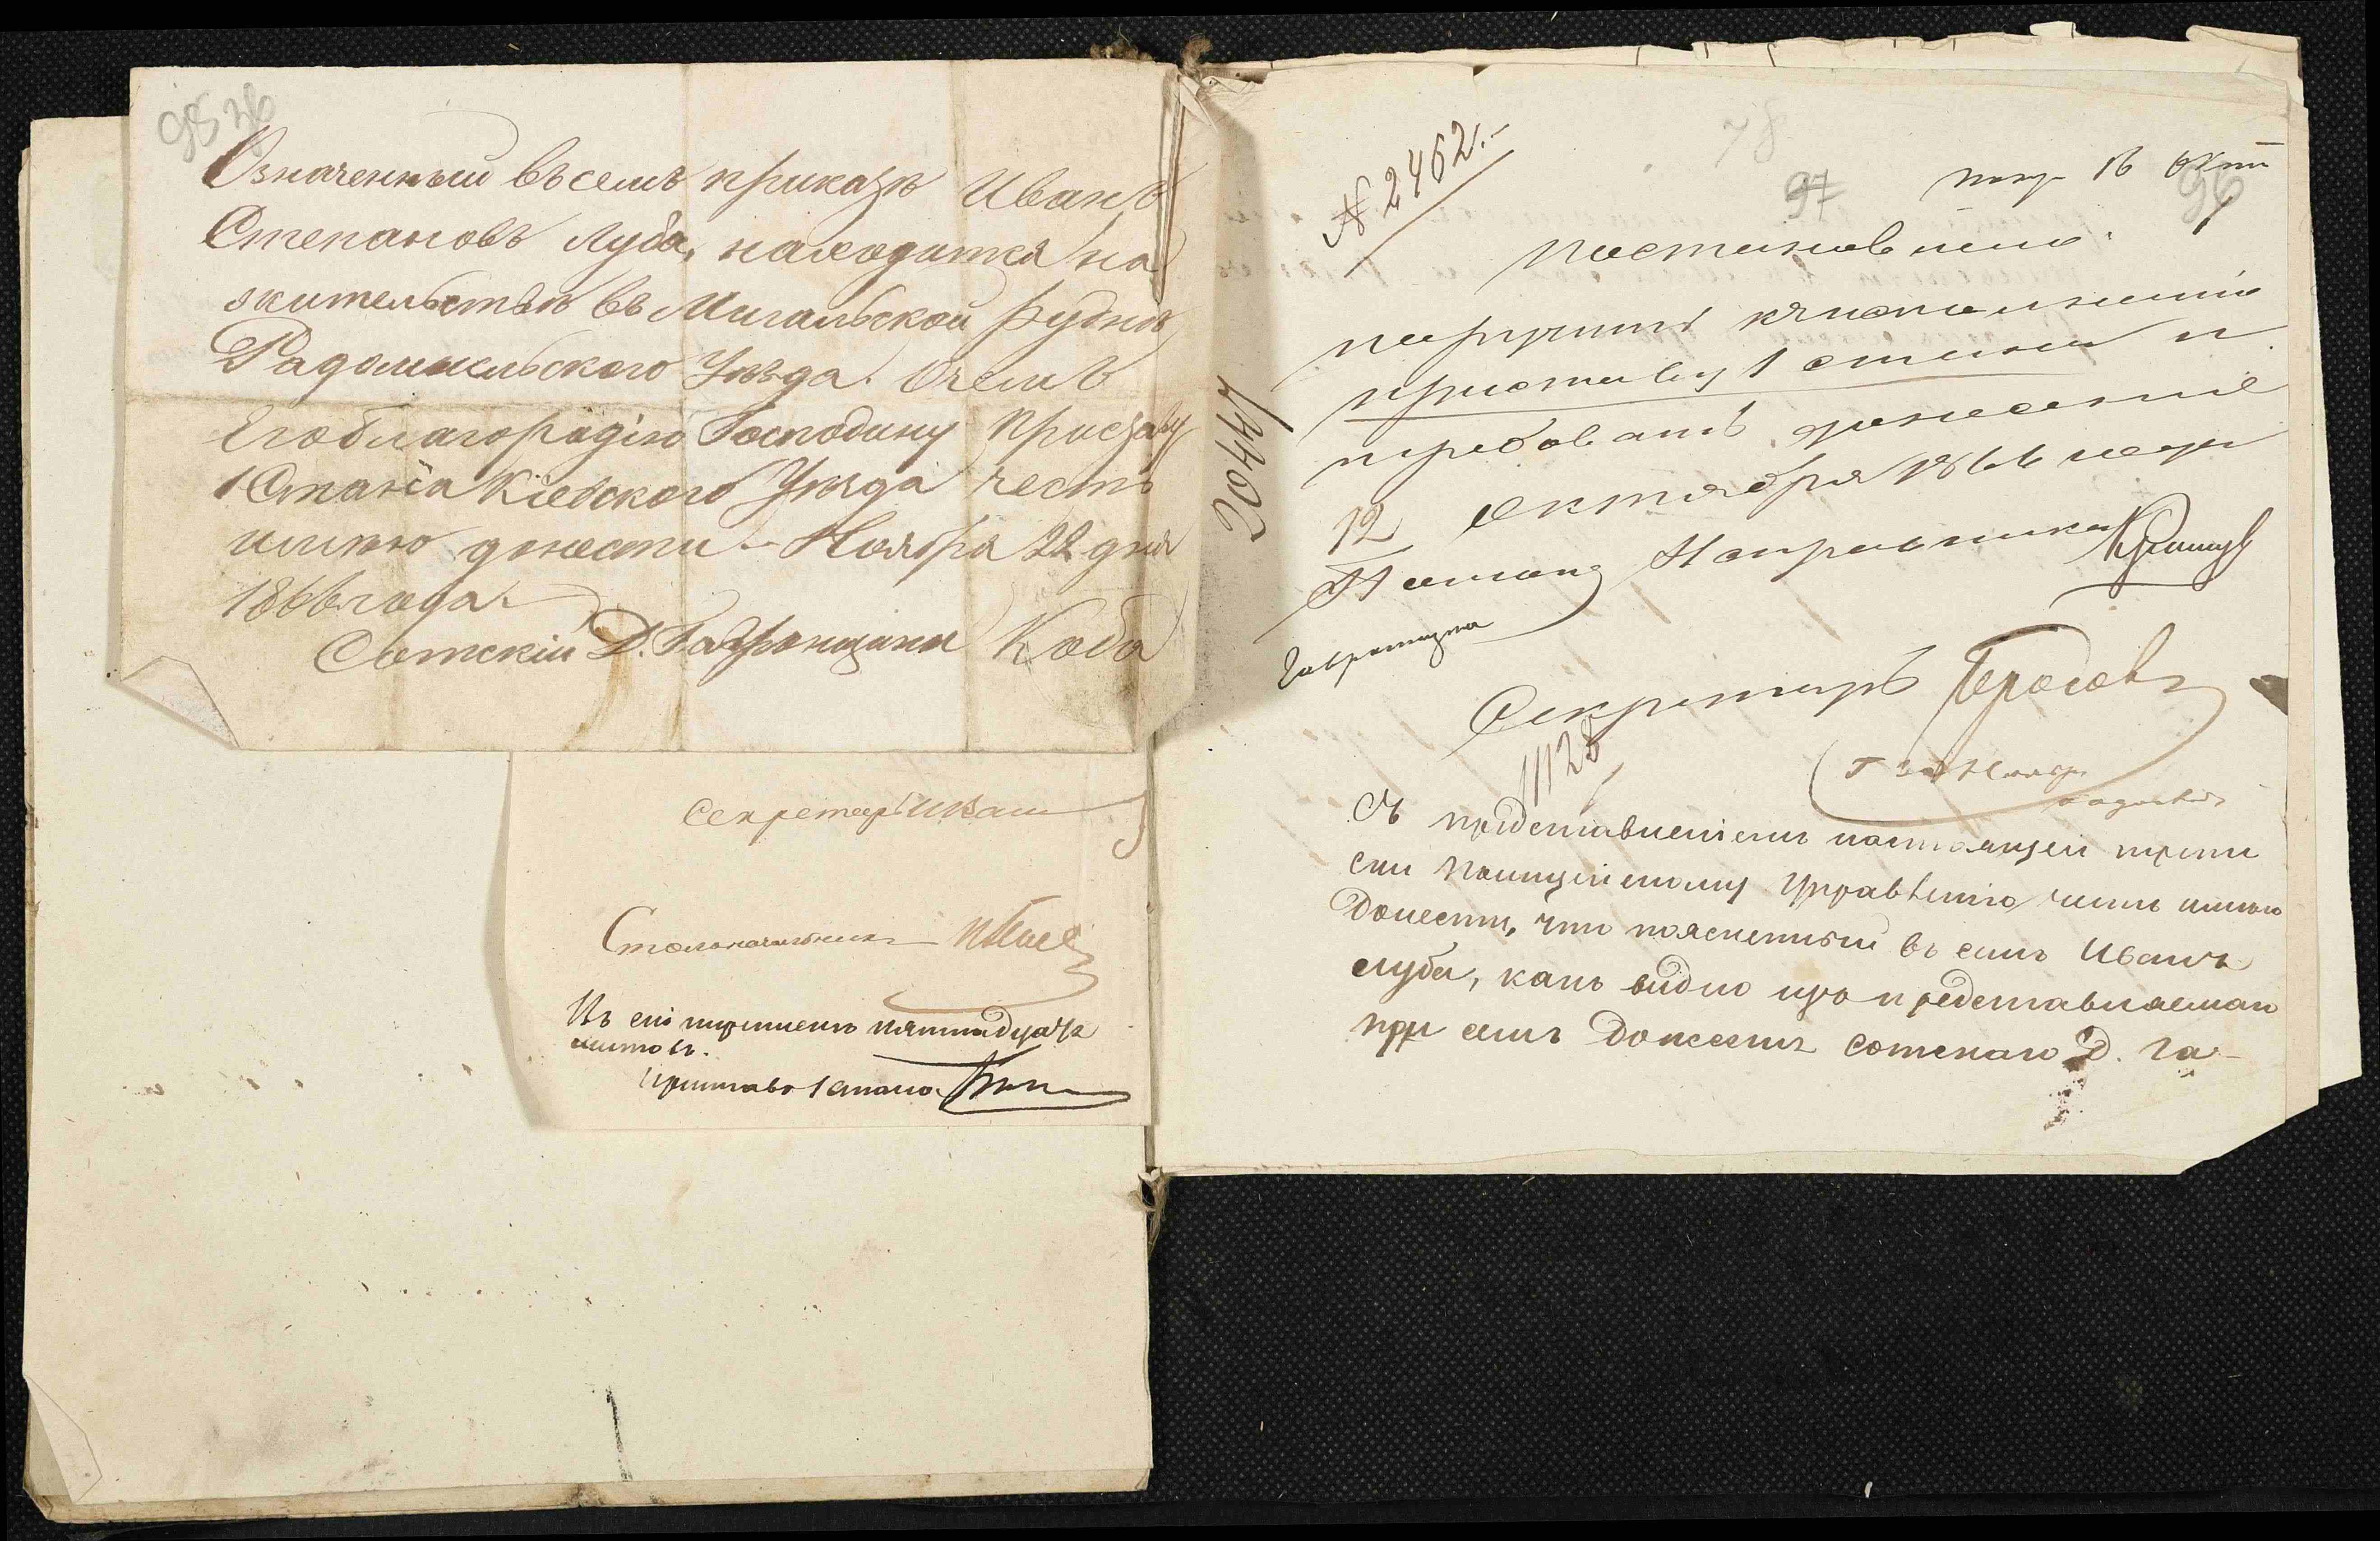 98 36
Означенный въ семъ приказѣ Иванъ
Степановъ Луба, находится на
жительствѣ въ Мигальской Рудни
Радомысльского Уѣзда. О чемъ
Его благородію Господину Приставу
1 Стана Кіевского Уѣзда честь
имѣю донести. Ноября 22 дня
1866 года.
Сотскій Д. Гавронщини Коба
Секретарь
Столоначальникъ
Въ сей переписке пятнадцать
листовъ.
Приставъ 1 стана
20447
№ 2462.
78
97
96
пол. 16 окт
Постановлено:
поручить къ исполненію
приставу 1 стана и
требовать донесеніе
12 октября 1866 года
Исправника
Гавронщина
Секретарь
11128
Съ представленіемъ настоящей перепи
ски Полицейскому Управленію, честь имѣю
донести, что поясненный въ семъ Иванъ
Луба, какъ видно изъ представляемаго
при семъ донесенія сотскаго Д. Га-